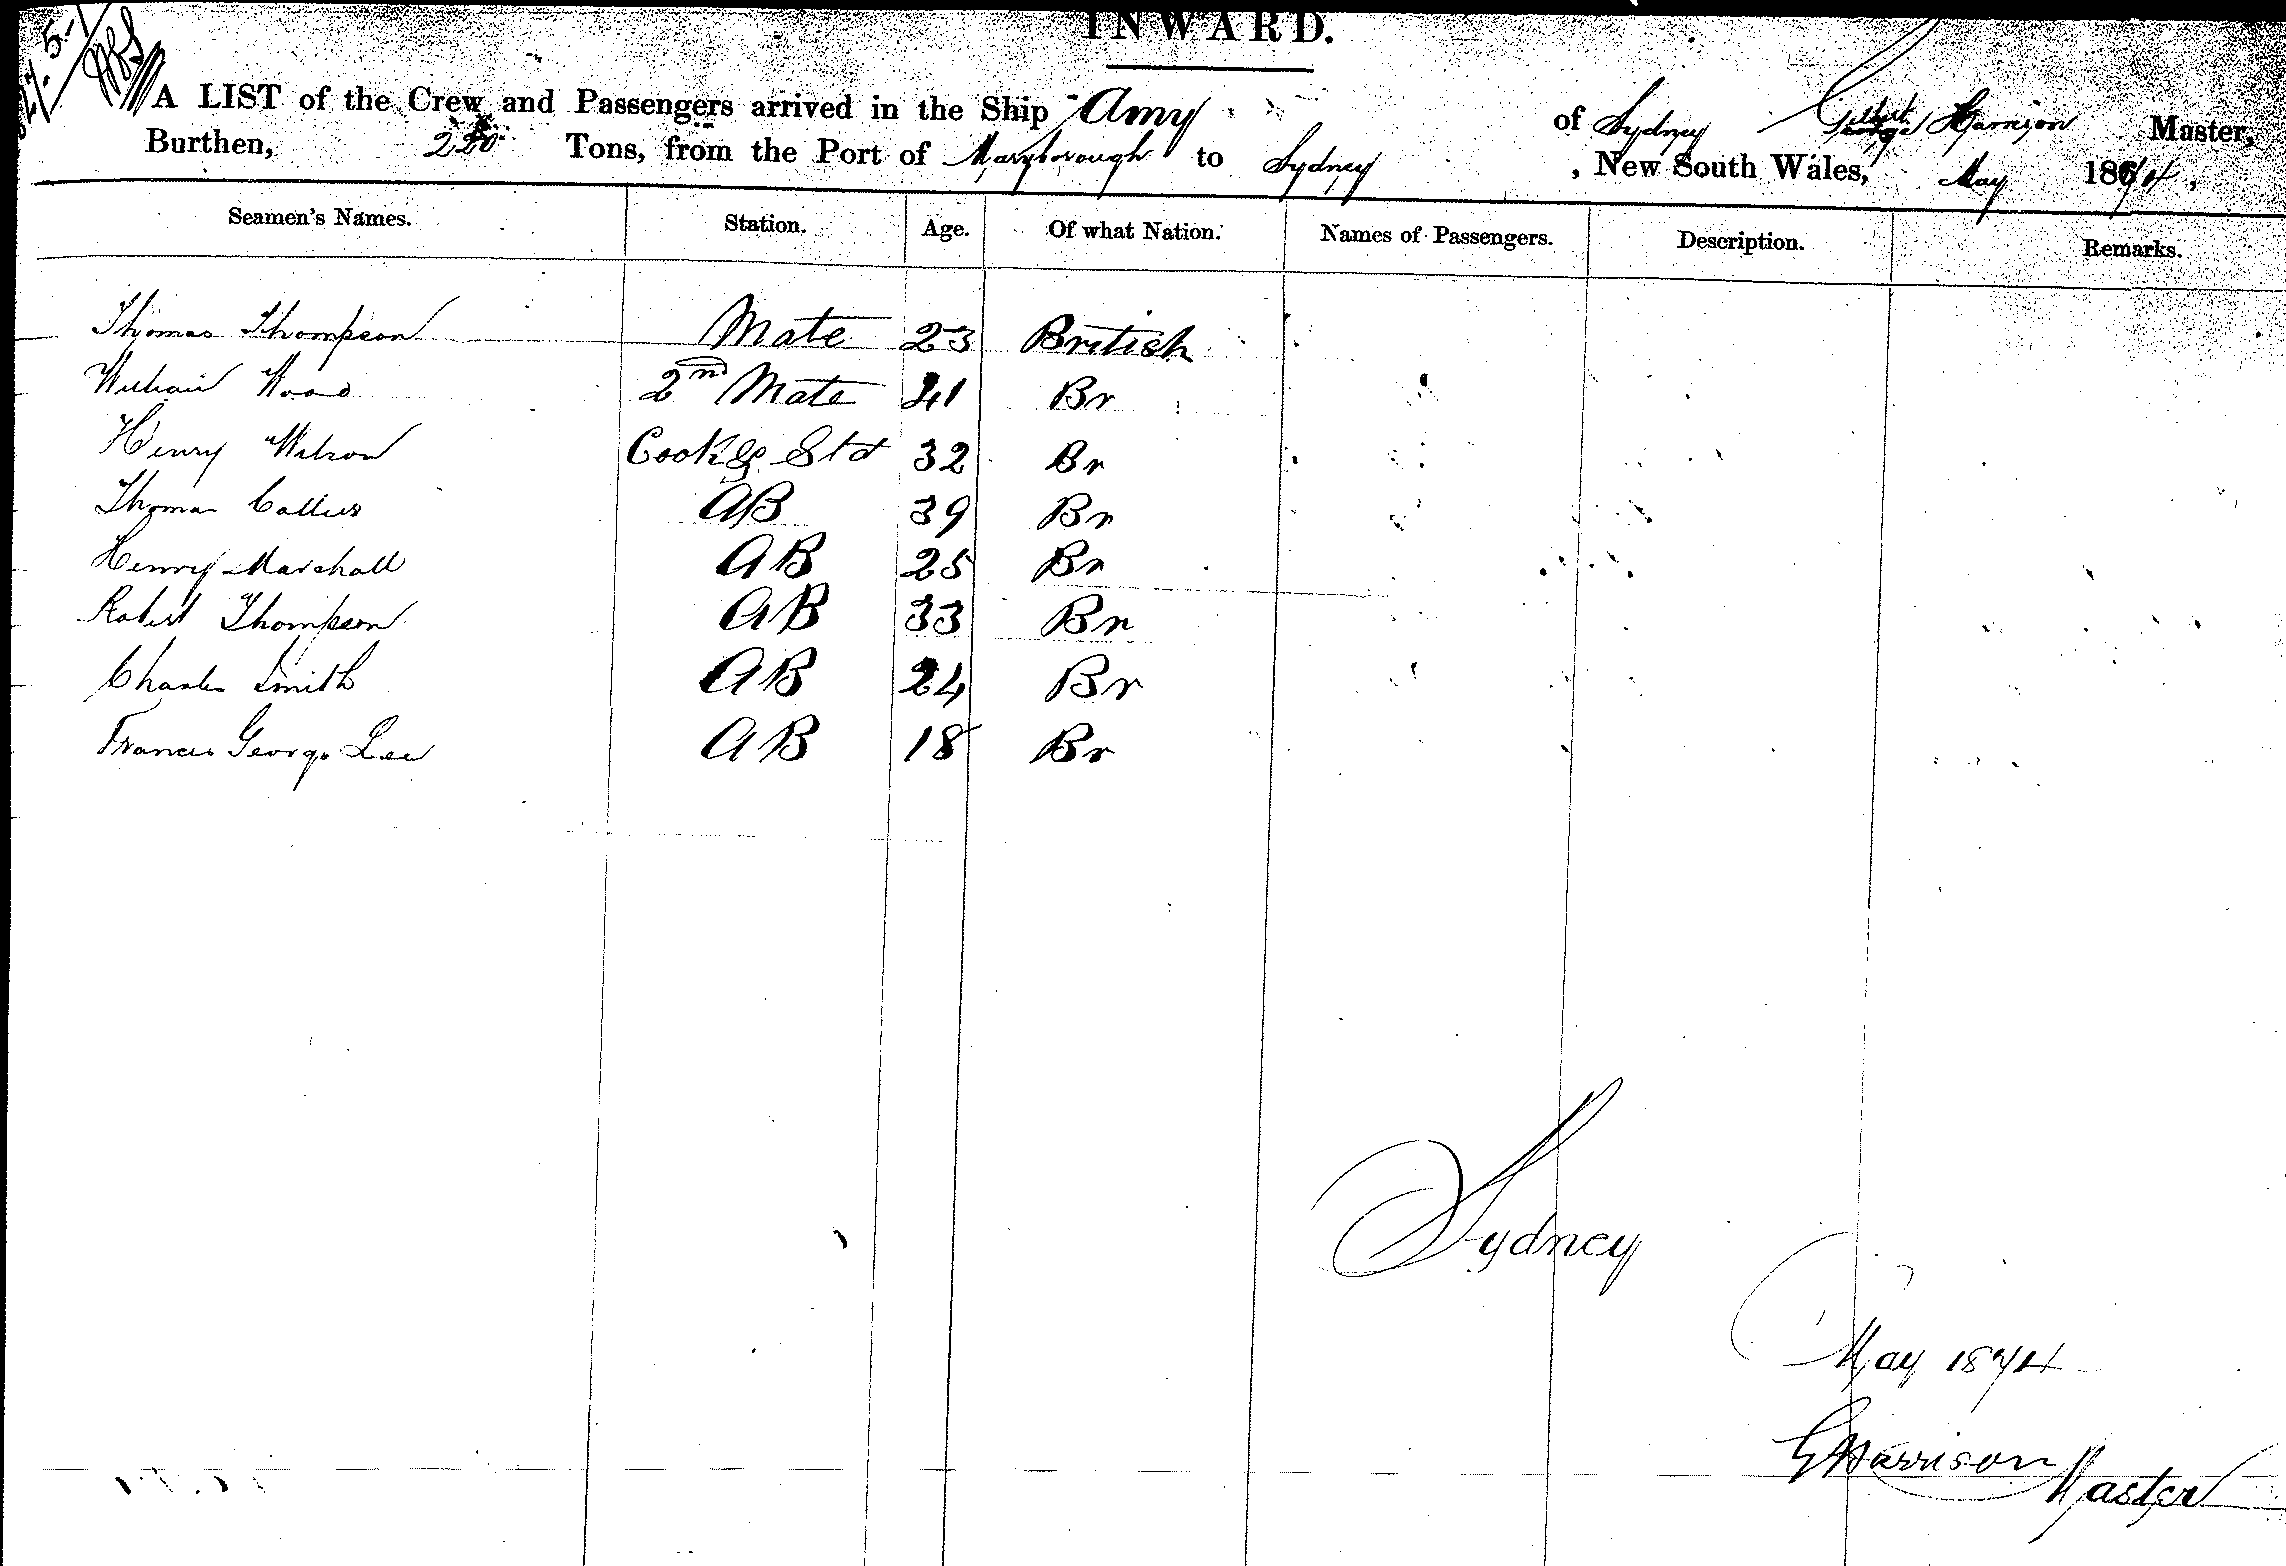 INWARD.
A LIST of the Crew and Passengers arrived in the Ship Amy of Sydney Gilbert Harrison Master,
Burthen, 220 Tons, from the Port of Maryborough to Sydney, New South Wales, May 1874,
Seamen's Names. Station. Age. Of what Nation. Names of Passengers. Description. Remarks.
Thomas Thompson Mate 23 British
William Wood 2nd Mate 21 Br
Henry Wilson Cook & Std 32 Br
Thomas AB 39 Br
Henry Marshall AB 25 Br
Robert Thompson AB 33 Br
Charles Smith AB 24 Br
Francis George Lee AB 18 Br
Sydney
May 1874
G Harrison
Master